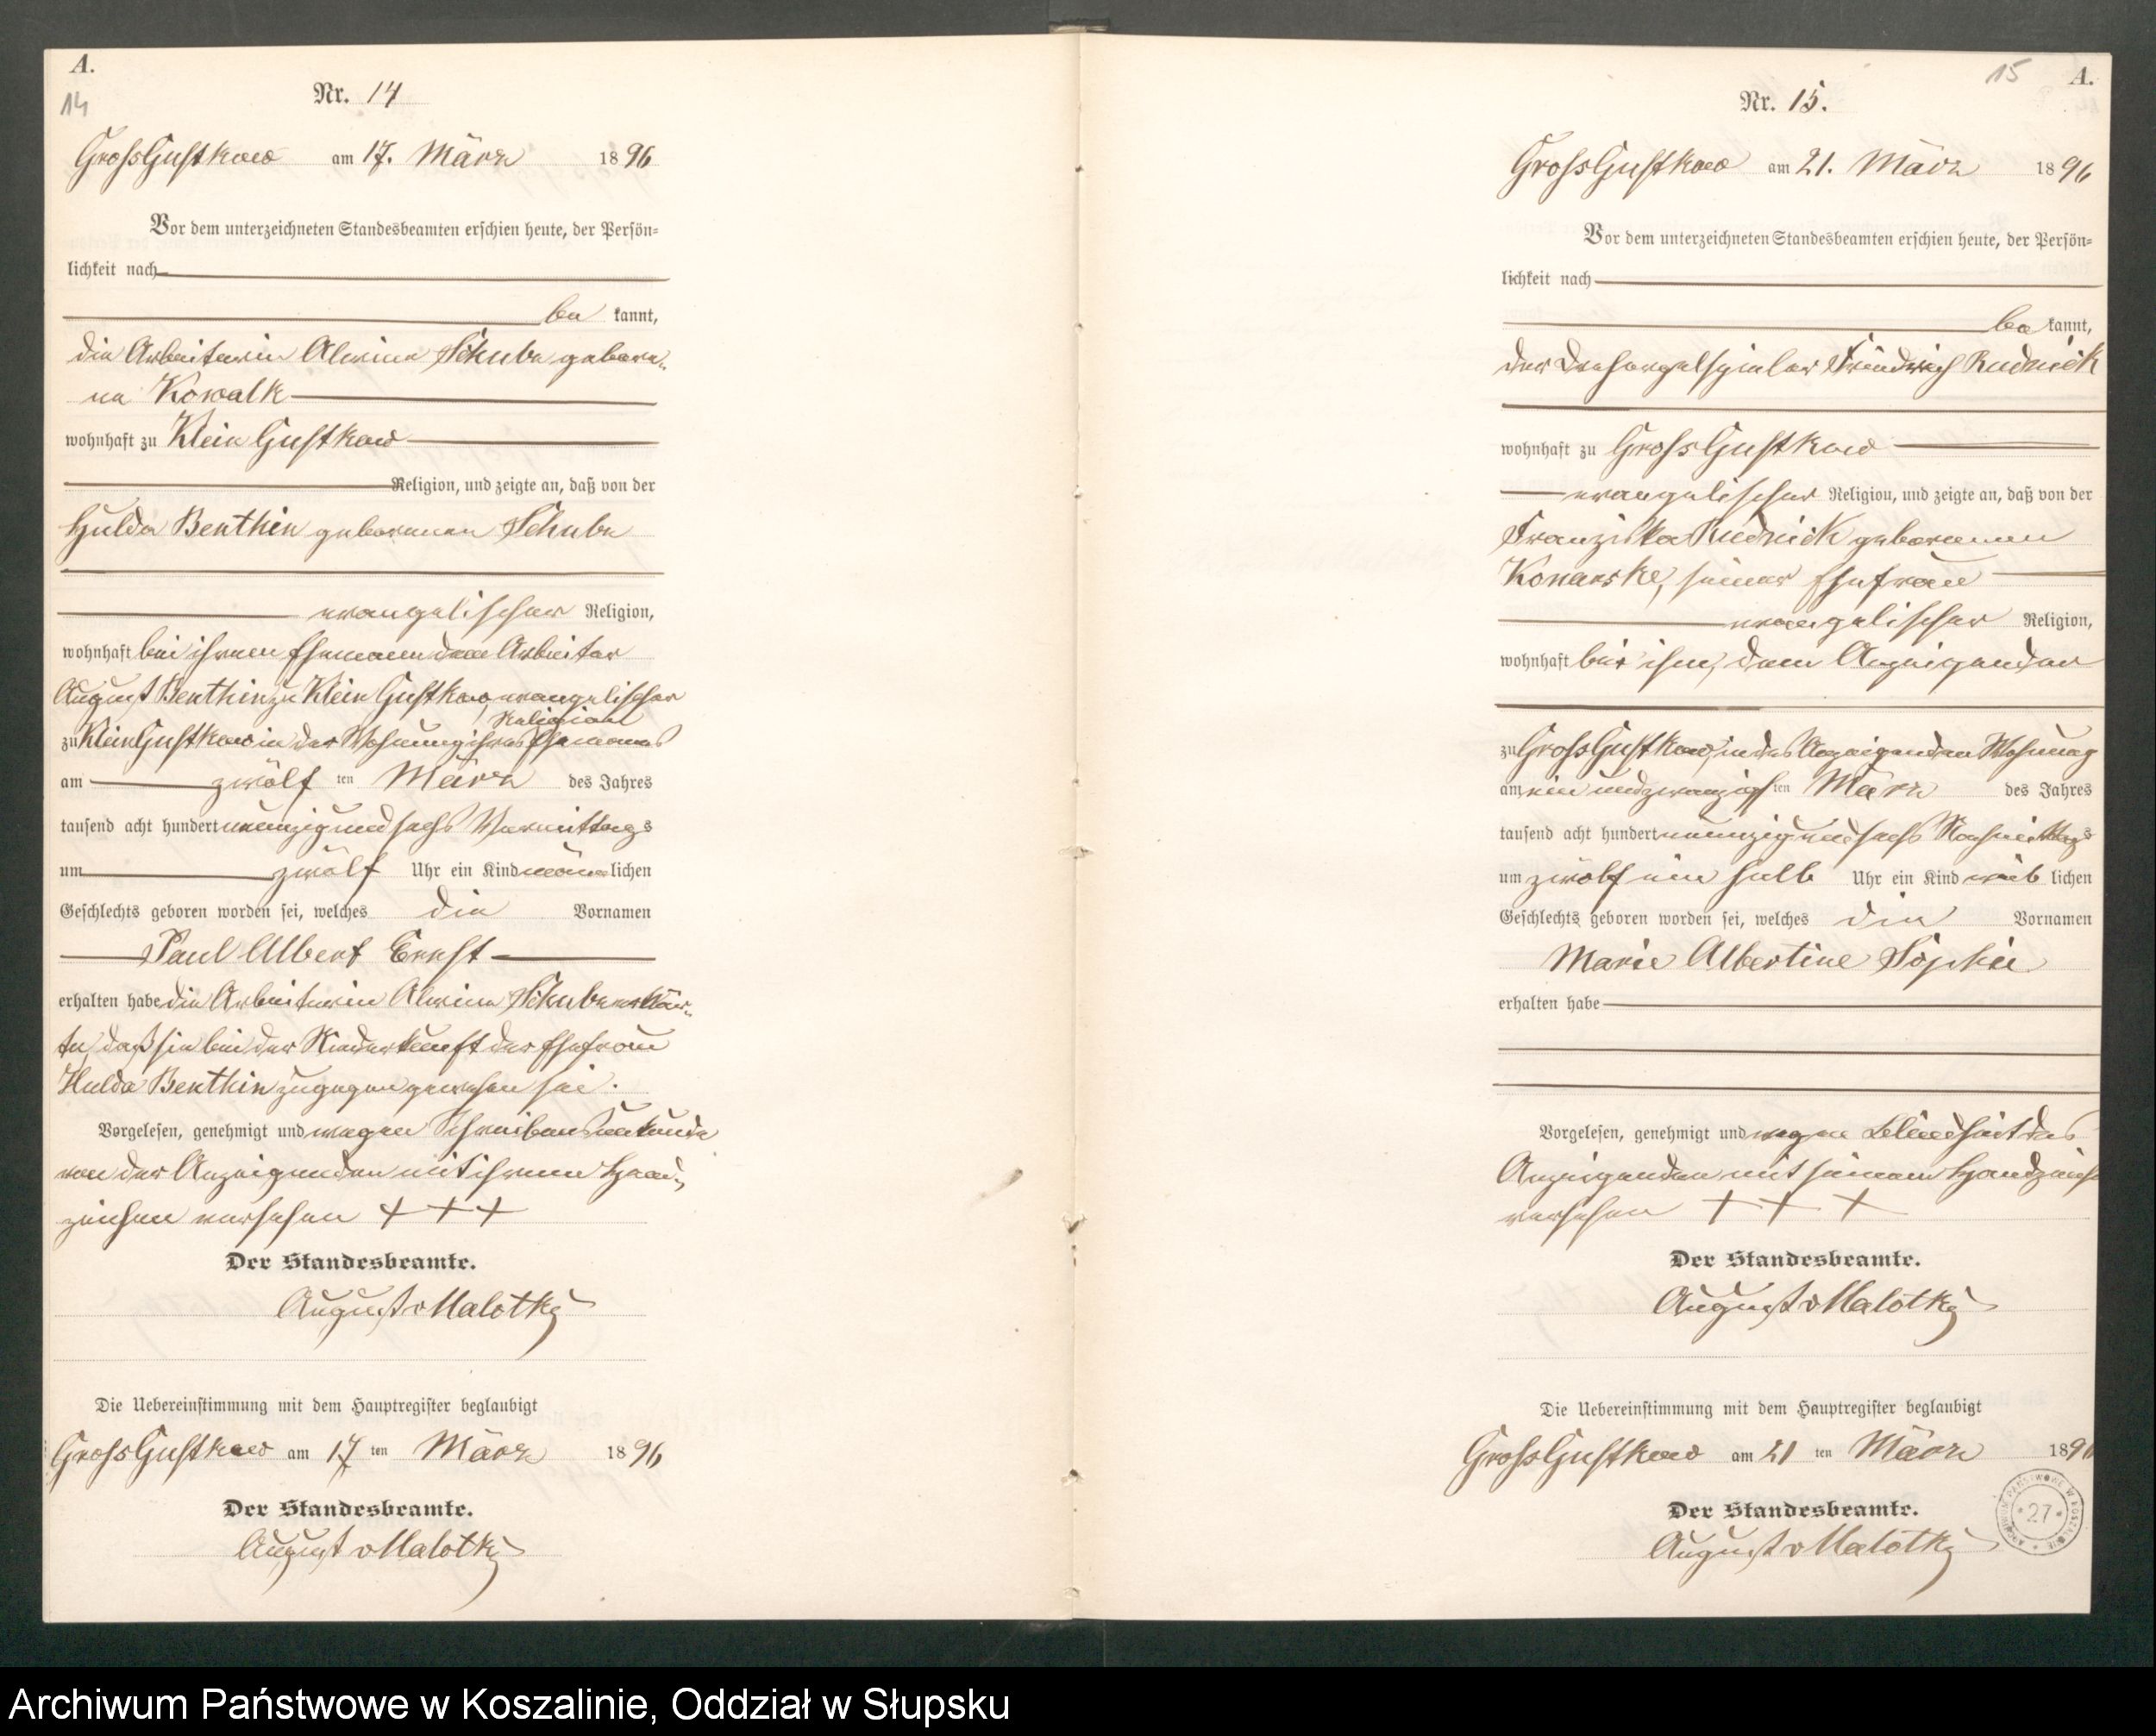 A.
14
Nr. 14
Gross Gustkow am 17. März 1896
Vor dem unterzeichneten Standesbeamten erschien heute, der Persön=
lichkeit nach
be kannt,
die Arbeiterin Alwine Schube gebore„
ne Kowalk
wohnhaft zu Klein Gustkow
Religion, und zeigte an, daß von der
Hulda Benthin geborenen Schube
evangelischer Religion,
wohnhaft bei ihrem Ehemann dem Arbeiter
August Benthin zu Klein Gustkow, evangelischer
Religion
zu Klein Gustkow in der Wohnung ihres Ehemanns
am zwölf ten März des Jahres
tausend acht hundert neunzig und sechs Vormittags
um zwölf Uhr ein Kind männ lichen
Geschlechts geboren worden sei, welches die Vornamen
Paul Albert Ernst
erhalten habe die Arbeiterin Alwine Schube erklär„
te, daß sie bei der Niederkunft der Ehefrau
Hulda Benthin zugegen gewesen sei.
Vorgelesen, genehmigt und wegen Schreibensunkunde
von der Anzeigenden mit ihrem Hand„
zeichen versehen + + +
Der Standesbeamte.
August v Malotky
Die Uebereinstimmung mit dem Hauptregister beglaubigt
Gross Gustkow am 17 ten März 1896
Der Standesbeamte.
August v Malotky
15 A.
Nr. 15.
Gross Gustkow am 21. März 1896
Vor dem unterzeichneten Standesbeamten erschien heute, der Persön=
lichkeit nach
be kannt,
der Drehorgelspieler Friedrich Rudnick
wohnhaft zu Gross Gustkow
evangelischer Religion, und zeigte an, daß von der
Franziska Rudnick geborenen
seiner Ehefrau
evangelischer Religion,
wohnhaft bei ihm, dem Anzeigenden
zu Gross Gustkow, in des Anzeigenden Wohnung
am ein und zwanzigsten März des Jahres
tausend acht hundert neunzig und sechs Nachmittags
um zwölf ein halb Uhr ein Kind weib lichen
Geschlechts geboren worden sei, welches die Vornamen
Marie Albertine Sophie
erhalten habe
Vorgelesen, genehmigt und wegen Blindheit des
Anzeigenden mit seinem Handzeichen
versehen + + +
Der Standesbeamte.
August v Malotky
Die Uebereinstimmung mit dem Hauptregister beglaubigt
Gross Gustkow am 21 ten März 1896
Der Standesbeamte.
August v Malotky
ARCHIWUM PAŃSTWOWE W KOSZALINIE
* 27 *
Archiwum Państwowe w Koszalinie, Oddział w Słupsku